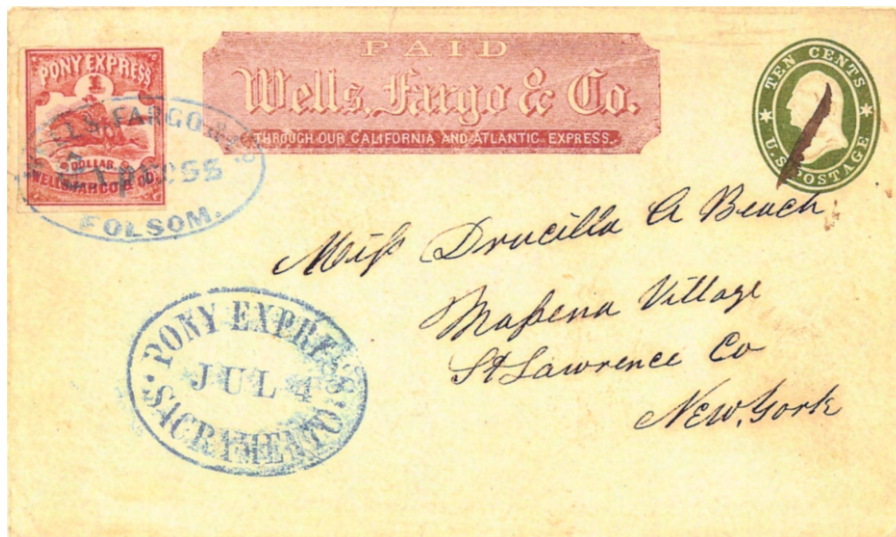 PONY EXPRESS
1
DOLLAR
WELLS FARGO & CO.
WELLS, FARGO & CO.
Express
FOLSOM.
PAID
Wells, Fargo & Co.
THROUGH OUR CALIFORNIA AND ATLANTIC EXPRESS.
TEN CENTS
U.S. POSTAGE
Miſs Drucilla A Beach
Maſsena Village
St Lawrence Co
New, York
PONY EXPRESS
JUL 4
SACRAMENTO